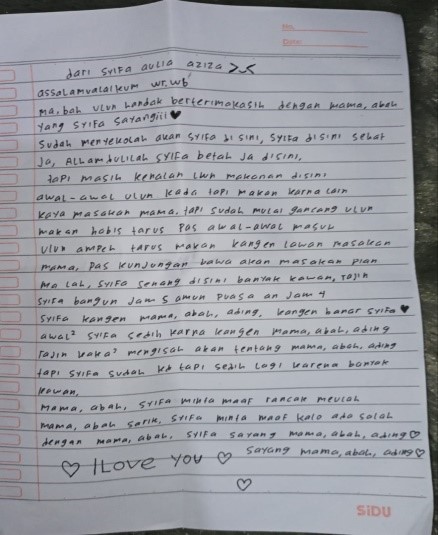 No.
Date:
dari syifa aulia aziza ><
assalamualaikum wr.wb
Ma, bah ulun handak berterimakasih dengan mama, abah
yang syifa sayangiii ♥
sudah menyekolah akan syifa di sini, syifa disini sehat
Ja, Alhamdulilah syifa betah ja disini,
tapi masih lwn makanan disini
awal-awal ulun kada tapi makan karna lain
kaya masakan mama. tapi sudah mulai gancang ulun
makan habis tarus pas awal-awal masuk
ulun ampeh tarus makan kangen lawan masakan
mama, pas kunjungan bawa akan masakan pian
ma lah, syifa senang disini banyak kawan, rajin
syifa bangun jam 5 amun puasa an jam 4
syifa kangen mama, abah, ading, kangen banar syifa ♥
awal² syifa sedih karna kangen mama, abah, ading
rajin kaka² mengisah akan tentang mama, abah, ading
tapi syifa sudah kd tapi sedih lagi karena banyak
kawan,
mama, abah, syifa minta maaf rancak meulah
mama, abah sarik, syifa minta maaf kalo ada salah
dengan mama, abah, syifa sayang mama, abah, ading ♡
♡ I Love You ♡ sayang mama, abah, ading ♡
♡
SiDU